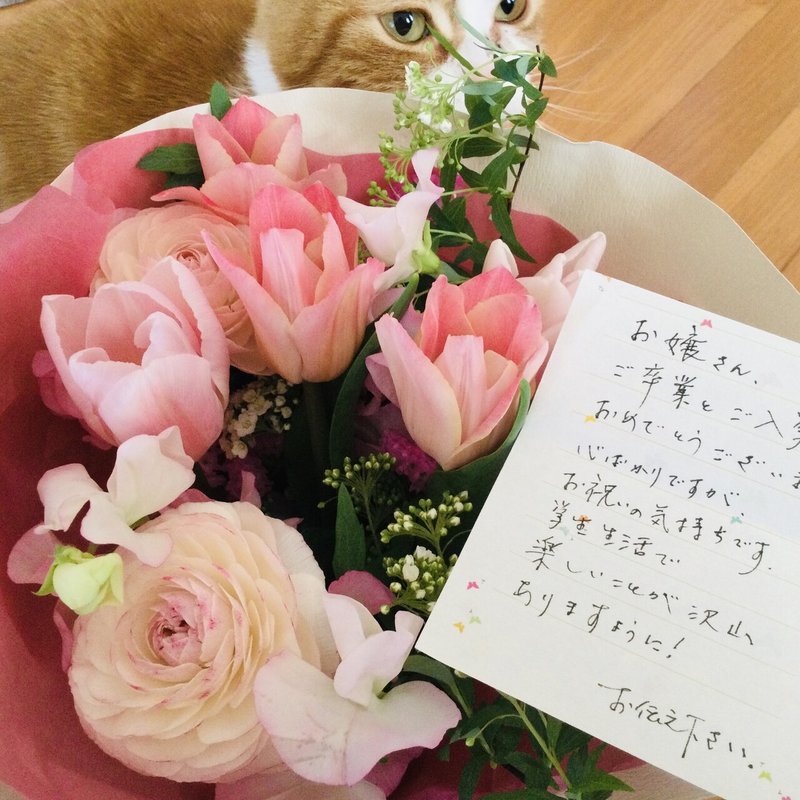 お嬢さん、
ご卒業とご入学
おめでとうござい
心ばかりですが、
お祝いの気持ちです。
学生生活で
楽しいことが沢山
ありますように!
お伝え下さい。